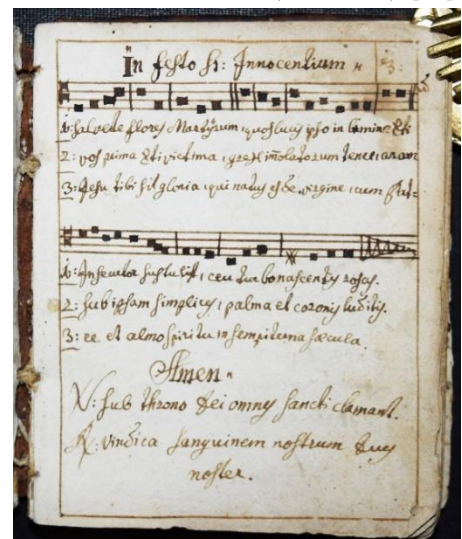 In Festo SS: Innocentium 3.
1: Salvete flores Martyrum, quos lucis ipso in limine Xti
2: vos prima Xti victima, grex im̃olatorum tener: aram
3: Jesu tibi sit gloria, qui natus es de virgine, cum Pat-
1: Insecutor sustulit, ceu turbo nascentes rosas.
2: sub ipsam simplices, palma et coronis luditis.
3: re et almo spiritu in sempiterna sæcula.
Amen
V: Sub throno Dei omnes sancti clamant.
R: vindica sanguinem nostrum Deus
noster.